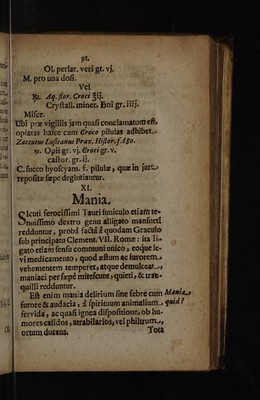 91.
Ol. perlar. veri gt. vj.
M. pro una dosi.
Vel
℞. Aq. flor. Croci ℥ij.
Crystall. miner. ana gr. iiij.
Misce.
Ubi præ vigiliis jam quasi conclamatum est,
opiatas hasce cum Croco pilulas adhibet
Zaccutus Lusitanus Prax. Histor. f. 480.
℞. Opii gr. vj. Croci gr. v.
castor. gr. ij.
C. succo hyoscyam. f. pilulæ, quæ in jure
repositæ sæpe deglutiantur.
XI.
Mania.
Sicuti ferocissimi Tauri funiculo etiam te-
nuissimo dextro genu alligato mansueti
redduntur, probâ factâ â quodam Graculo
sub principatu Clement. VII. Romæ: ita li-
gato etiam sensu communi unico, eoque le-
vi medicamento, quod æstum ac furorem
vehementem temperet, atque demulceat,
maniaci per sæpè mitescunt, quieti, & tran-
quilli redduntur.
Est enim mania delirium sine febre cum Mania
furore & audacia, â spirituum animalium quid?
fervida, ac quasi ignea dispositione, ob hu-
mores calidos, atrabilarios, vel philtrum,
ortum ducens. Tota